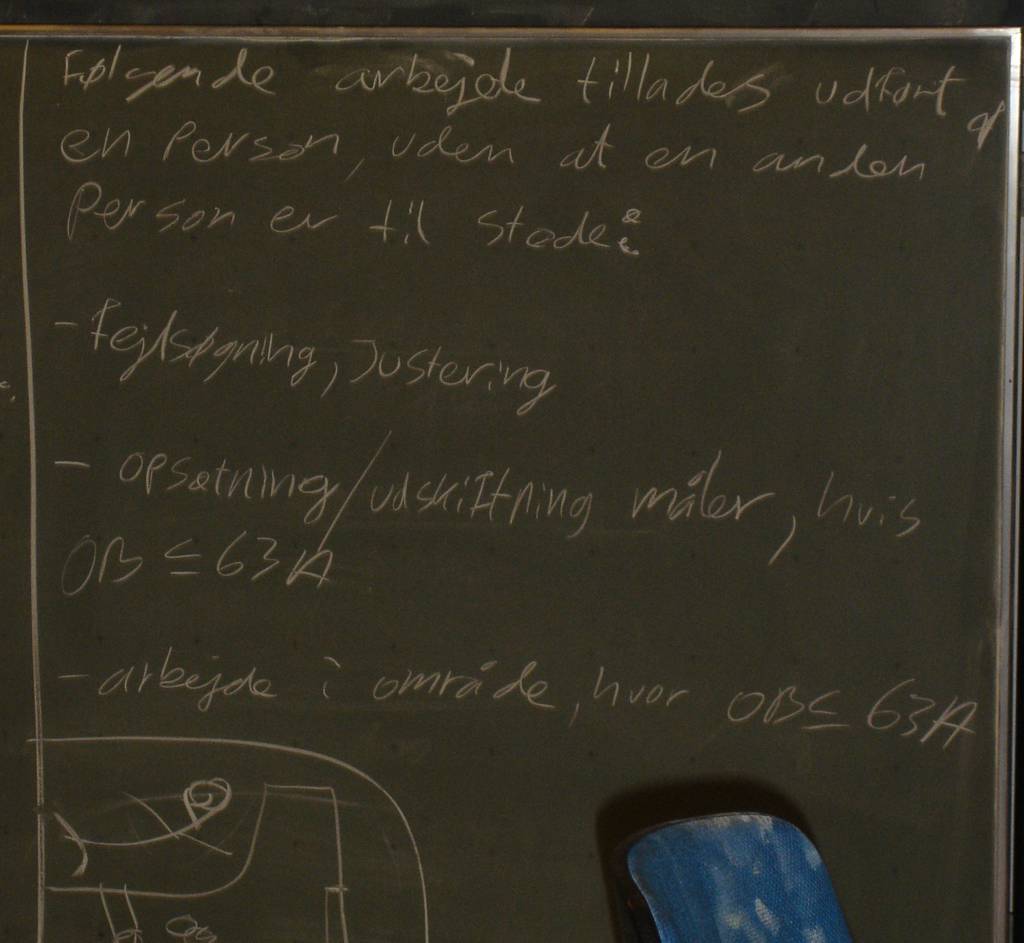 Følgende arbejde tillades udført af
en Person, uden at en anden
Person er til stede:
- Fejlsøgning, Justering
- opsætning/udskiftning måler, hvis
OB ≤ 63A
- arbejde i område, hvor OB ≤ 63A